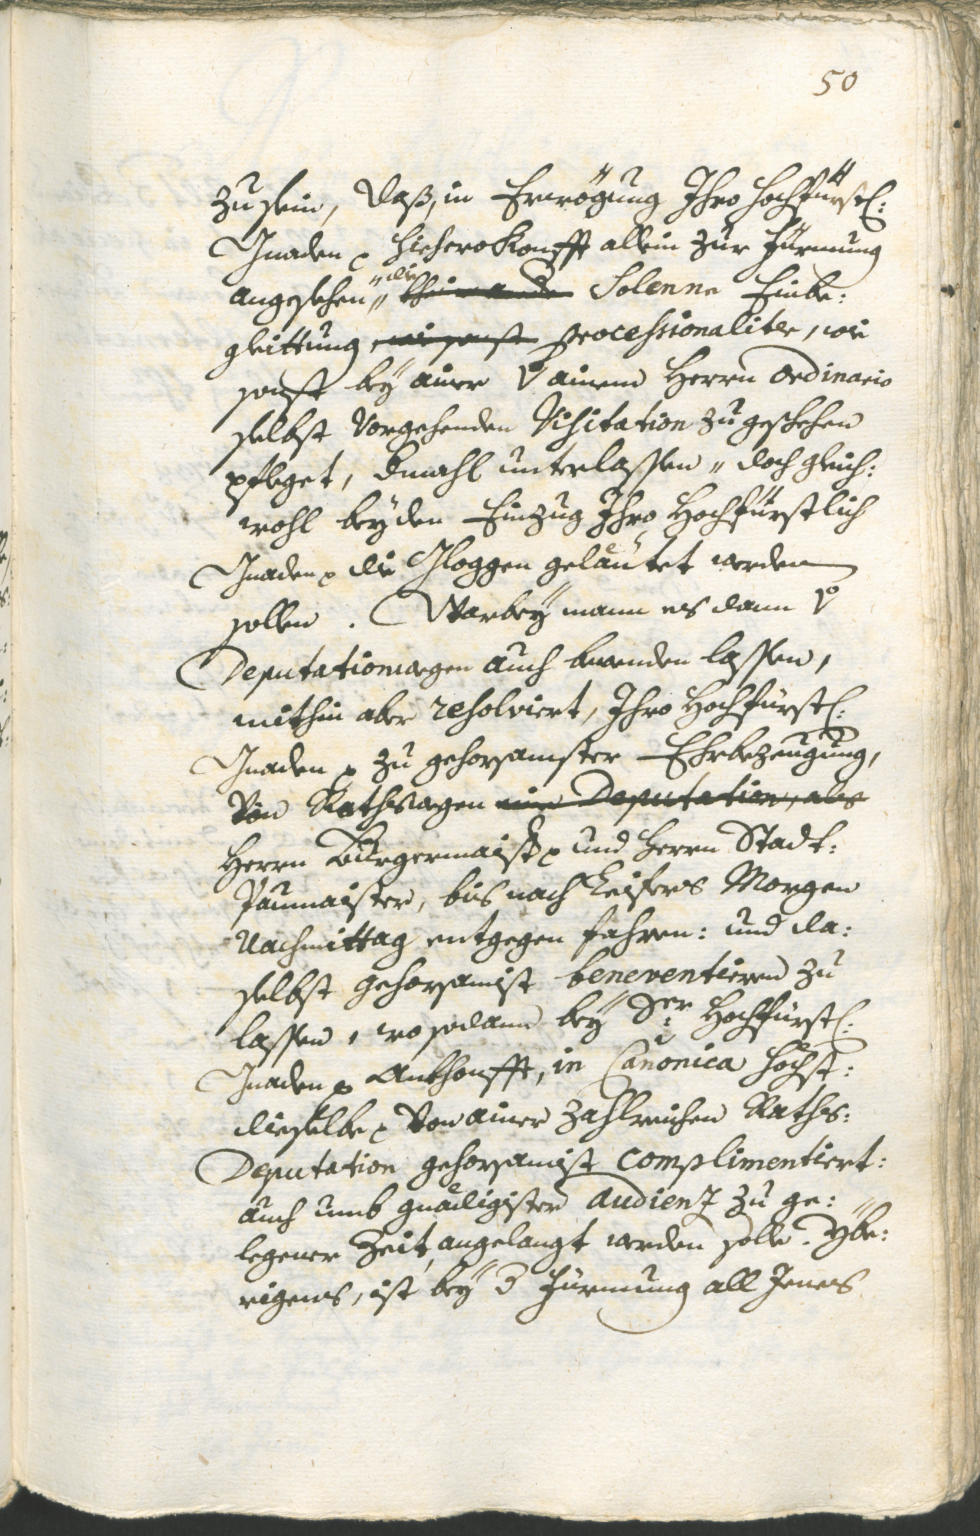 50
zu sein, daß, in Erwögung Ihro Hochfürstl:
Gnaden p hieherokonfft allein zur Fürmung
angesehen „ die Solenne Einbe:
gleittung processionaliter, wie
sonst bey ainer V ainem Herrn Ordinario
selbst Vorgehenden Visitation zu geschehen
pfleget, dmahl unterlassen „ doch gleich:
wohl bey den Einzug Ihro Hochfürstlich
Gnaden p die Gloggen geläutet werden
sollen. Warbey mann es dann V
Deputationwegen auch bewenden lassen,
mithin aber resolviert, Ihro Hochfürstl:
Gnaden p zu gehorsamster Ehrbezeugung,
Von Rathswegen eine Deputation, als
Herrn Burgermaistr p und Herrn Stadt:
Paumaister, bis nach Leifers Morgen
Nachmittag entgegen fahren: und da:
selbst gehorsamist beneventieren zu
lassen, wo sodann bey Sr: Hochfürstl:
Gnaden p Ankhonfft, in Canonica höchst:
dieselbe p Von ainer zahlreichen Raths:
Deputation gehorsamist complimentiert:
auch umb gnädigister Audienz zu ge:
legener Zeit, angelangt werden solle. Ybe:
rigens, ist bey d Fürmung all Jenes